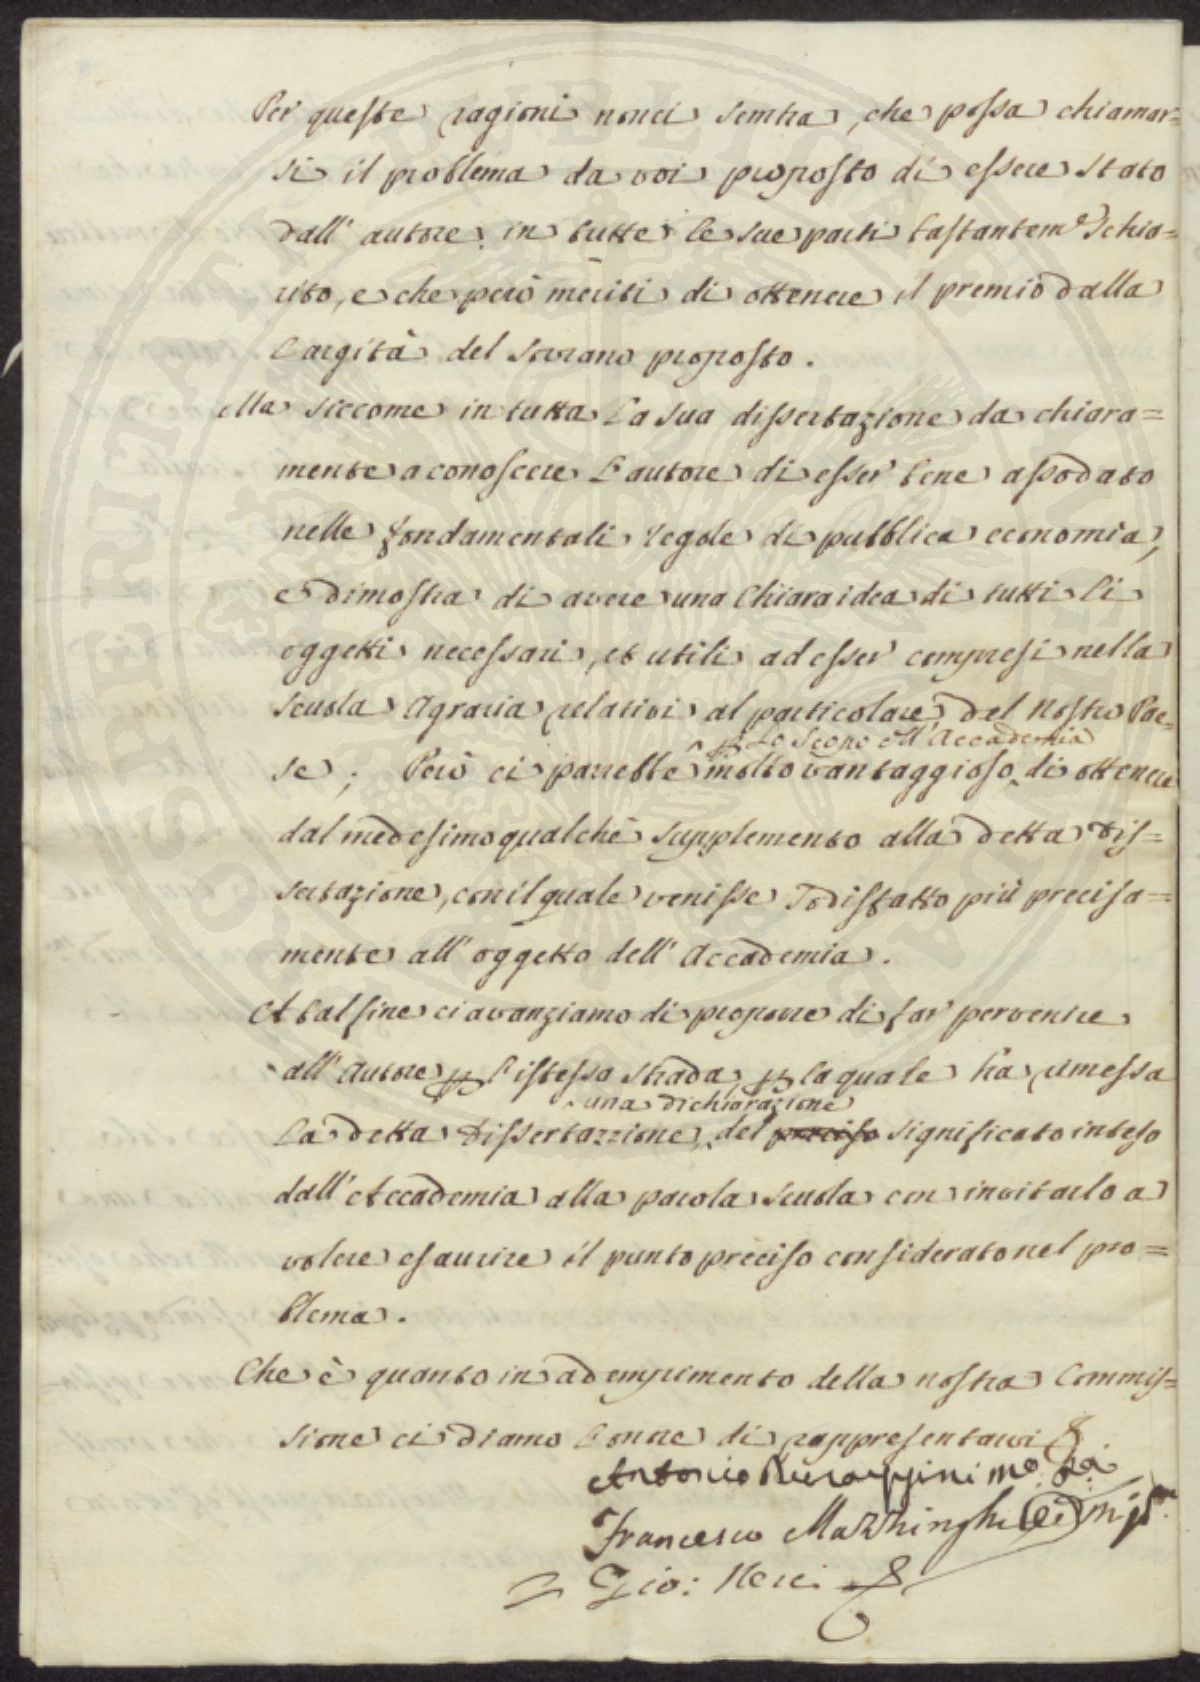 Per queste ragioni non ci sembra, che possa chiamar=
si il problema da voi proposto di essere stato
dall' autore in tutte le sue parti bastantem.e schia=
rito, e che però meriti di ottenere il premio dalla
largità del sovrano proposto.
Ma siccome in tutta la sua dissertazione da chiara=
mente a conoscere l'autore di esser bene assodato
nelle fondamentali regole di pubblica economia,
e dimostra di avere una chiara idea di tutti li
oggetti necessari, et utili ad esser compresi nella
scuola Agraria relativi al particolare del nostro Pae=
p lo scopo dell'Accademia
se; Però ci parrebbe molto vantaggioso di ottenere
dal medesimo qualche supplemento alla detta Dis=
sertazione, con il quale venisse sodisfatto più precisa=
mente all' oggetto dell' Accademia.
A tal fine ci avanziamo di proporre di far pervenire
all' Autore p l'istessa strada, p la quale ha rimessa
una dichiarazione
la detta Dissertazzione, del preciso significato inteso
dall' Accademia alla parola scuola con invitarlo a
volere esaurire il punto preciso considerato nel pro=
blema.
Che è quanto in adempimento della nostra Commis=
sione ci diamo l'onore di rappresentarvi
Antonio
Francesco Mazzinghi
Gio: Neri
PROSPERITATI PUBLICAE AUGENDAE